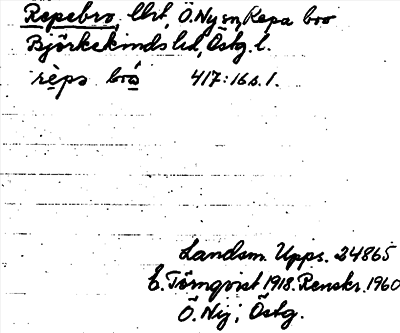 Repebro, Ö. Ny sn, Repa bro
Björkekinds hd, Östg. l.
rèps broa 417:16s.1.
Landsm. Upps. 24865
E. Törnqvist 1918. Renskr. 1960
Ö. Ny; Östg.